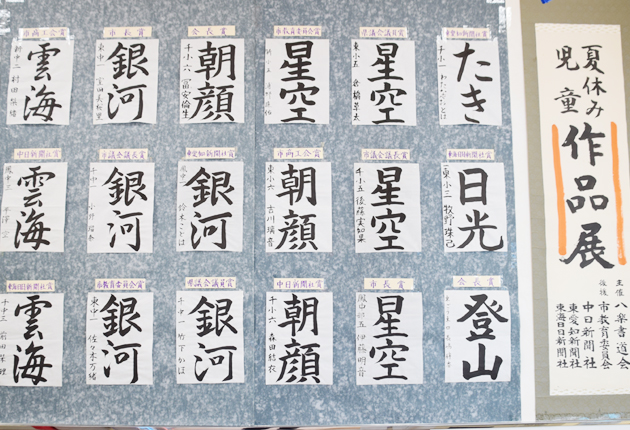 夏休み
児童
作品展
主催 八楽書道会
後援 市教育委員会
中日新聞社
東愛知新聞社
東海日日新聞社
東愛知新聞社賞
たき
県議会議員賞
星空
市教育委員会賞
星空
会長賞
朝顔
市長賞
銀河
東中一
市商工会賞
雲海
東海日日新聞社賞
日光
東小二 牧野珠己
市議会議長賞
星空
千小五 後藤実知果
市商工会賞
朝顔
東小六 吉川璃音
東愛知新聞社賞
銀河
鈴木ことは
市議会議長賞
銀河
中日新聞社賞
雲海
会長賞
登山
市長賞
星空
中日新聞社賞
朝顔
千小六 森田結衣
県議会議員賞
銀河
千中一 竹下かほ
市教育委員会賞
銀河
東中一 佐々木万緒
東海日日新聞社賞
雲海
千中三